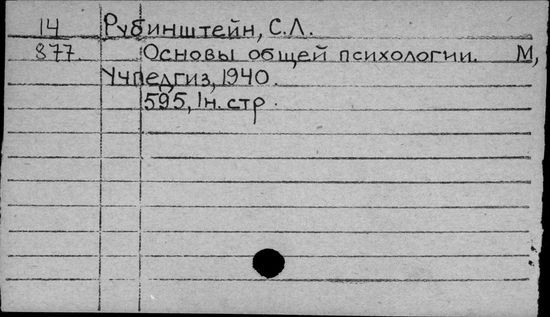 14 Рубинштейн, С.Л.
877. Основы общей психологии. М,
Учпедгиз, 1940.
595, 1н. стр.